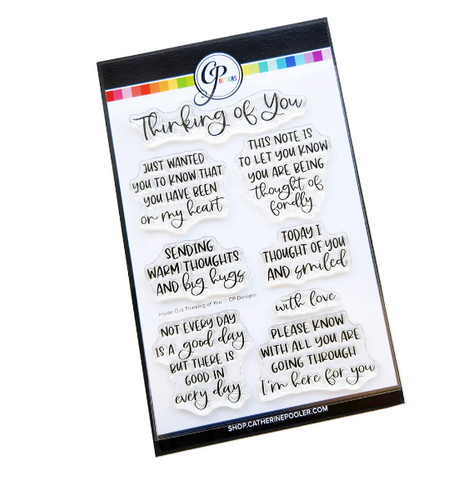 CP
DESIGNS
Thinking of You
JUST WANTED
YOU TO KNOW THAT
YOU HAVE BEEN
on my heart
THIS NOTE IS
TO LET YOU KNOW
YOU ARE BEING
thought of
fondly
SENDING
WARM THOUGHTS
AND big hugs
TODAY I
THOUGHT OF YOU
AND smiled
Inside Out Thinking of You © CP Designs
with love
NOT EVERY DAY
IS A good day
BUT THERE IS
GOOD IN
every day
PLEASE KNOW
WITH ALL YOU ARE
GOING THROUGH
I'm here for you
SHOP.CATHERINEPOOLER.COM